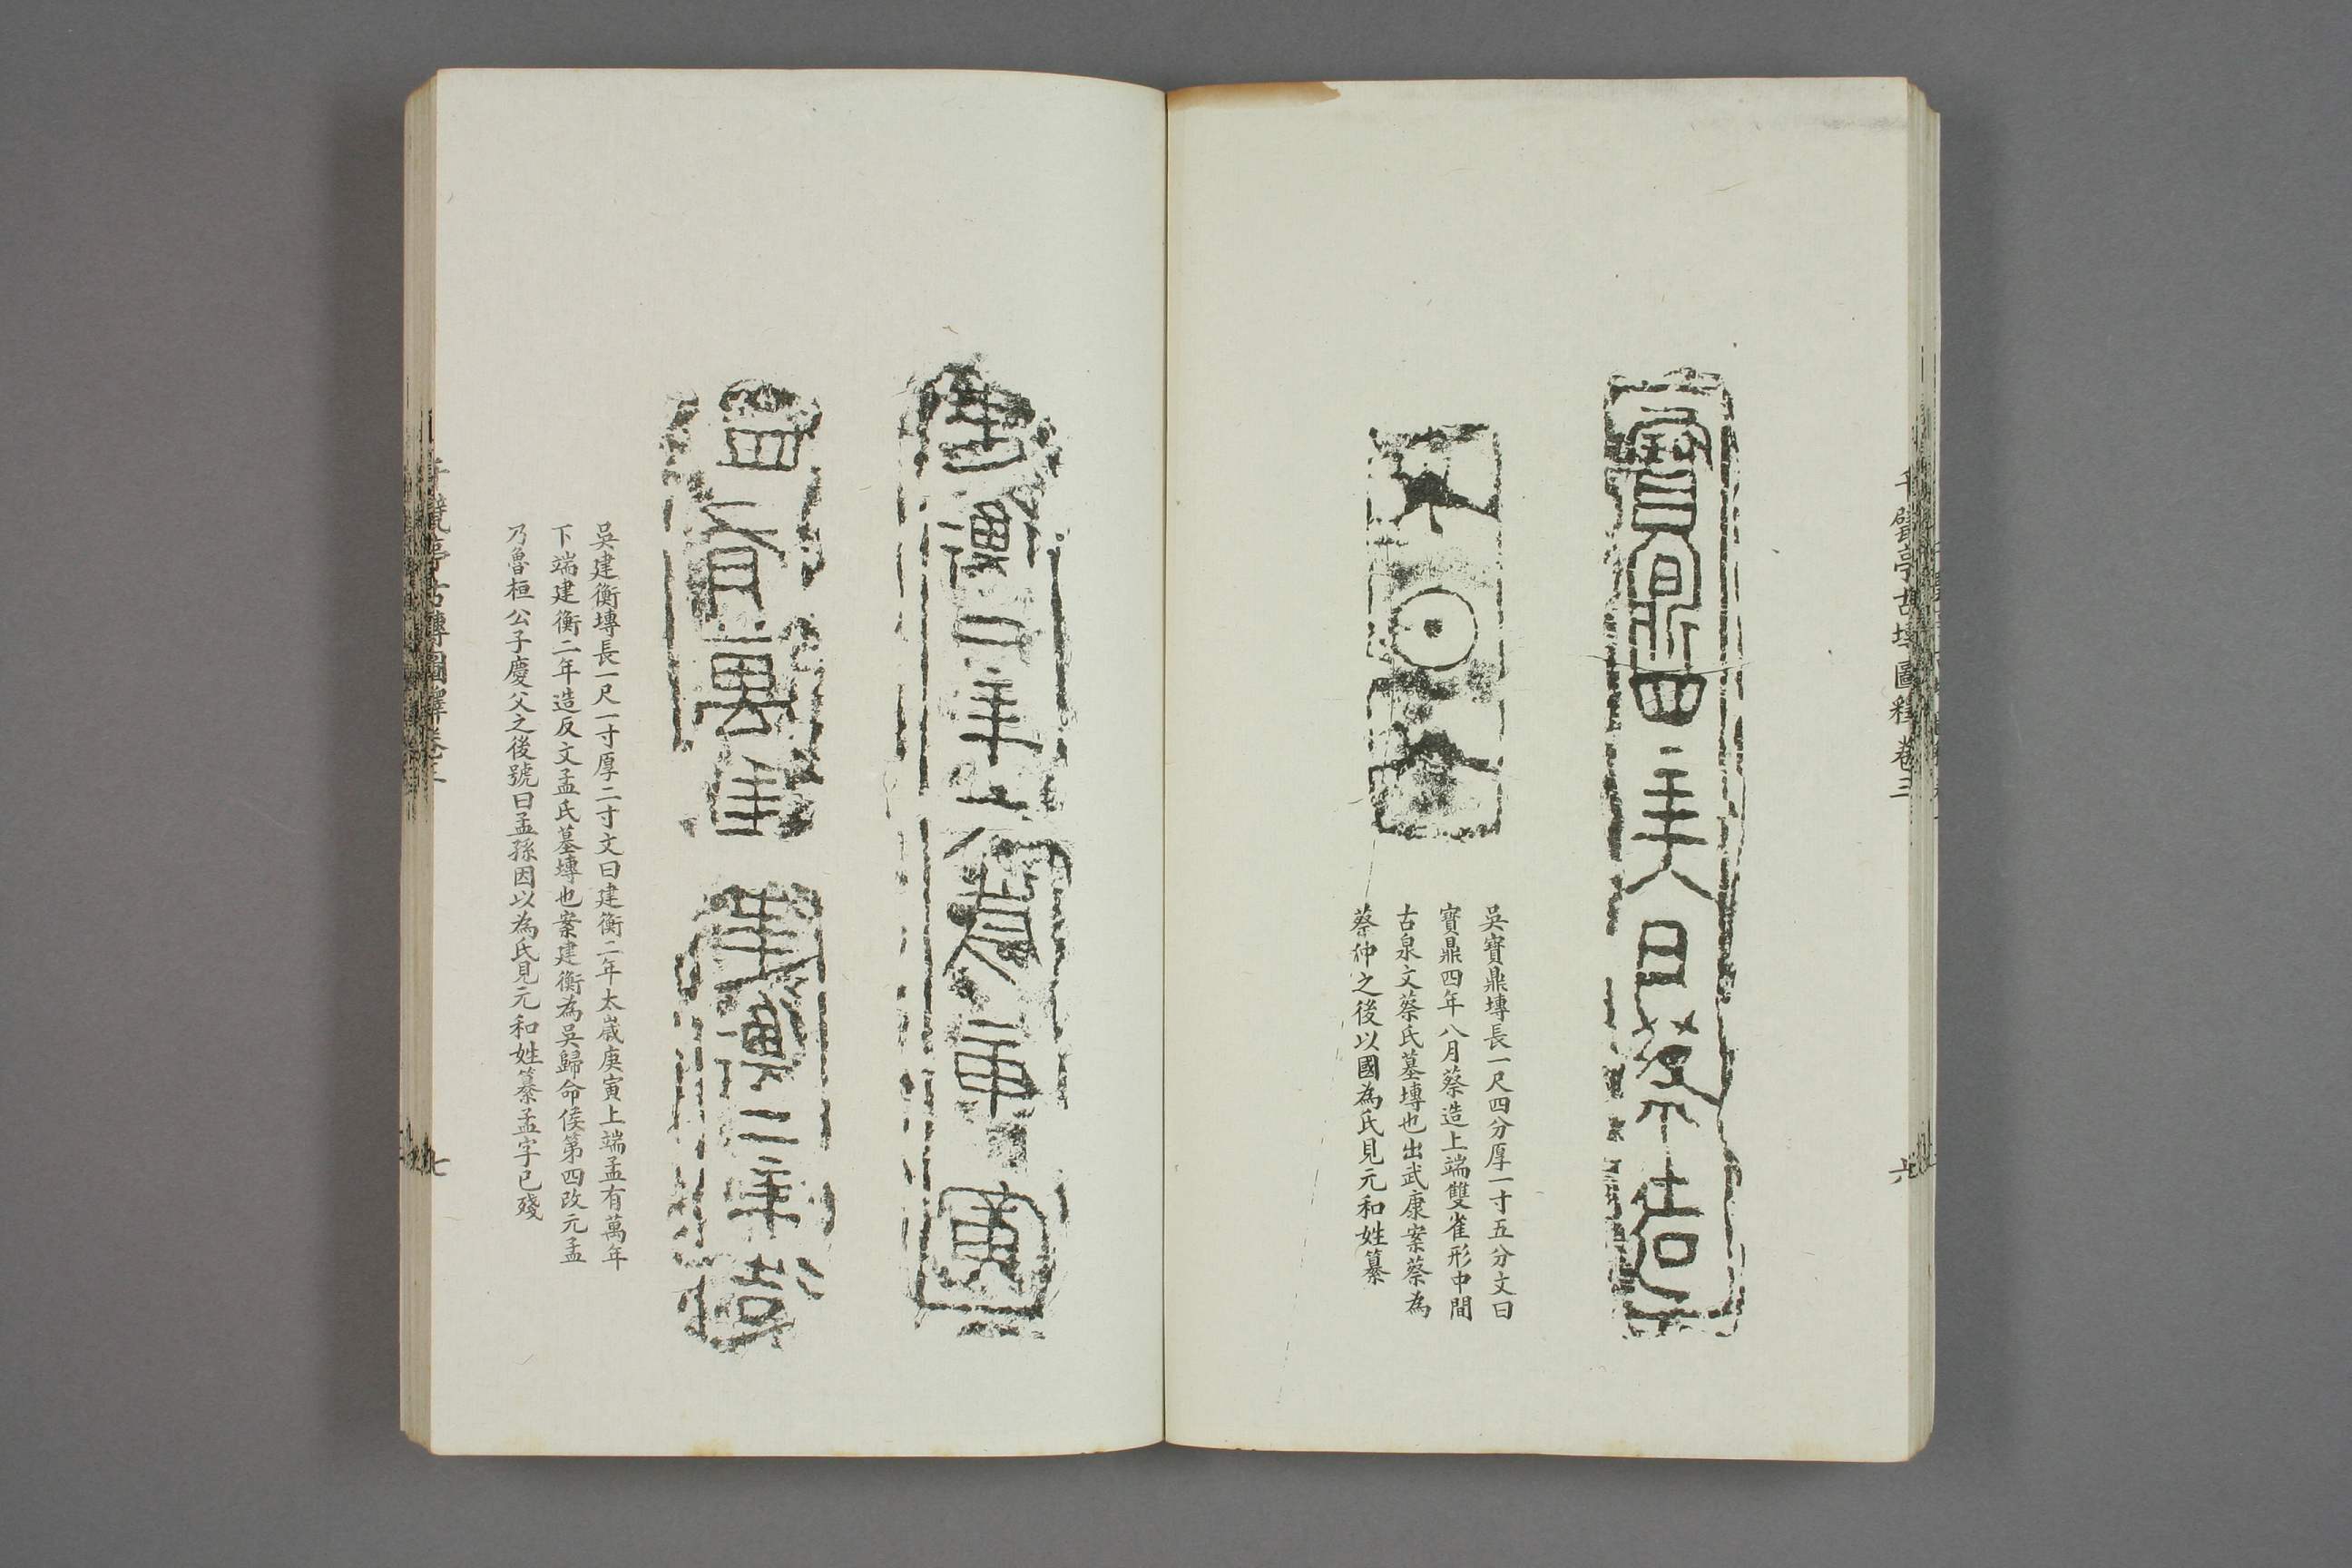 千甓亭古塼圖釋卷三
六
寶鼎四年八月蔡造
吳寶鼎塼長一尺四分厚一寸五分文曰
寶鼎四年八月蔡造上端雙雀形中間
古泉文蔡氏墓塼也出武康案蔡為
蔡仲之後以國為氏見元和姓纂
建衡二年太歲庚寅
孟有萬年
建衡二年造
吳建衡塼長一尺一寸厚二寸文曰建衡二年太歲庚寅上端孟有萬年
下端建衡二年造反文孟氏墓塼也案建衡為吳歸命侯第四改元孟
乃魯桓公子慶父之後號曰孟孫因以為氏見元和姓纂孟字已殘
千甓亭古塼圖釋卷三
七